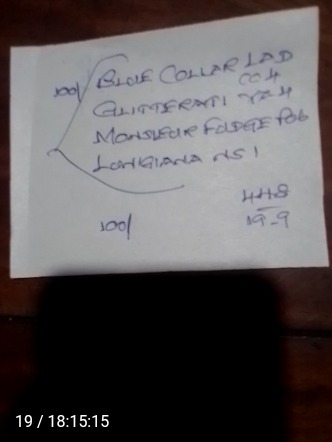 100/ BLUE COLLAR LAD
CC4
GLITTERATI YR4
MONSIEUR FUDGE PO6
LONGIANA NS1
448
100/ 19-9
19 / 18:15:15